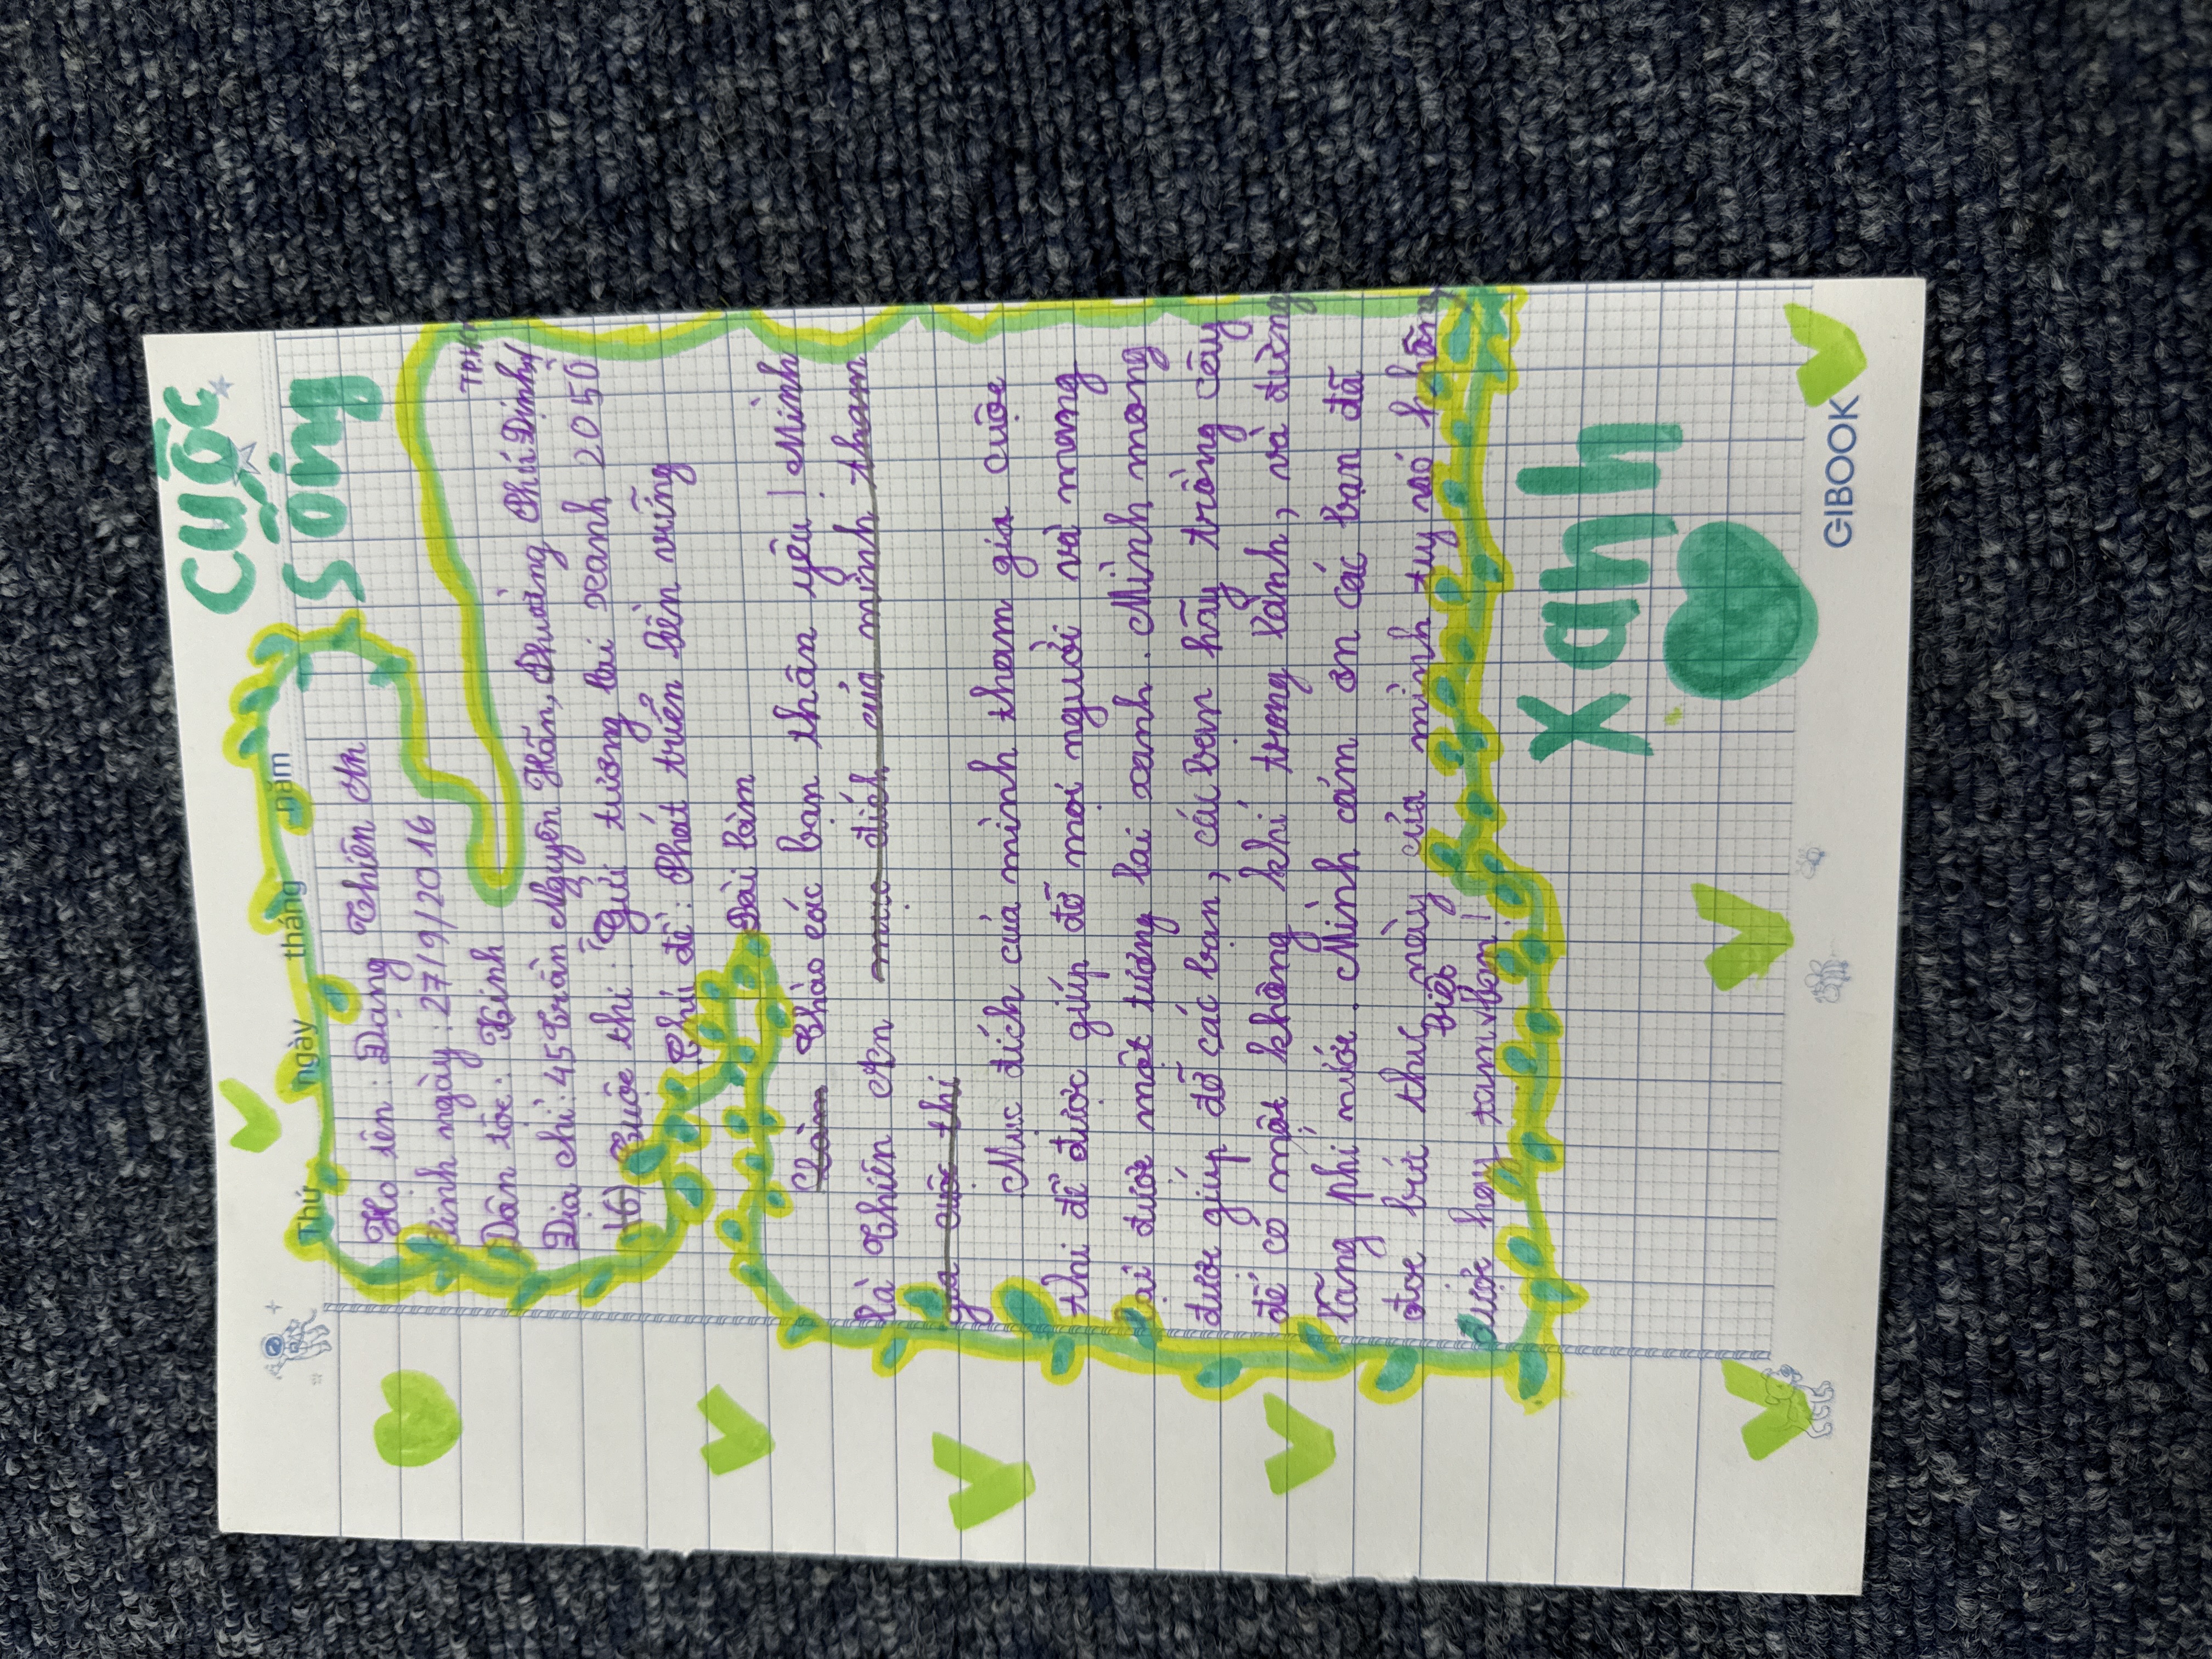 cuộc
sống
Thứ ngày tháng năm
Họ tên: Đặng Thiên An
Sinh ngày: 27/9/2016
Dân tộc: Kinh
TP.H
Địa chỉ: 45 Trần Nguyên Hãn, Phường Phú Định,
16) Cuộc thi: "Gửi tương lai xanh 2050
Chủ đề: Phát triển bền vững
Bài làm
Chào các bạn thân yêu! Mình
là Thiên An mục đích của mình tham
gia cuộc thi
Mục đích của mình tham gia cuộc
thi để được giúp đỡ mọi người và mong
lại được một tương lai xanh. Mình mong
được giúp đỡ các bạn, các bạn hãy trồng cây
để có một không khí trong lành, và đừng
lãng phí nước. Mình cám ơn các bạn đã
đọc bức thư này của mình tuy nó không
được hay lắm
xanh
GIBOOK